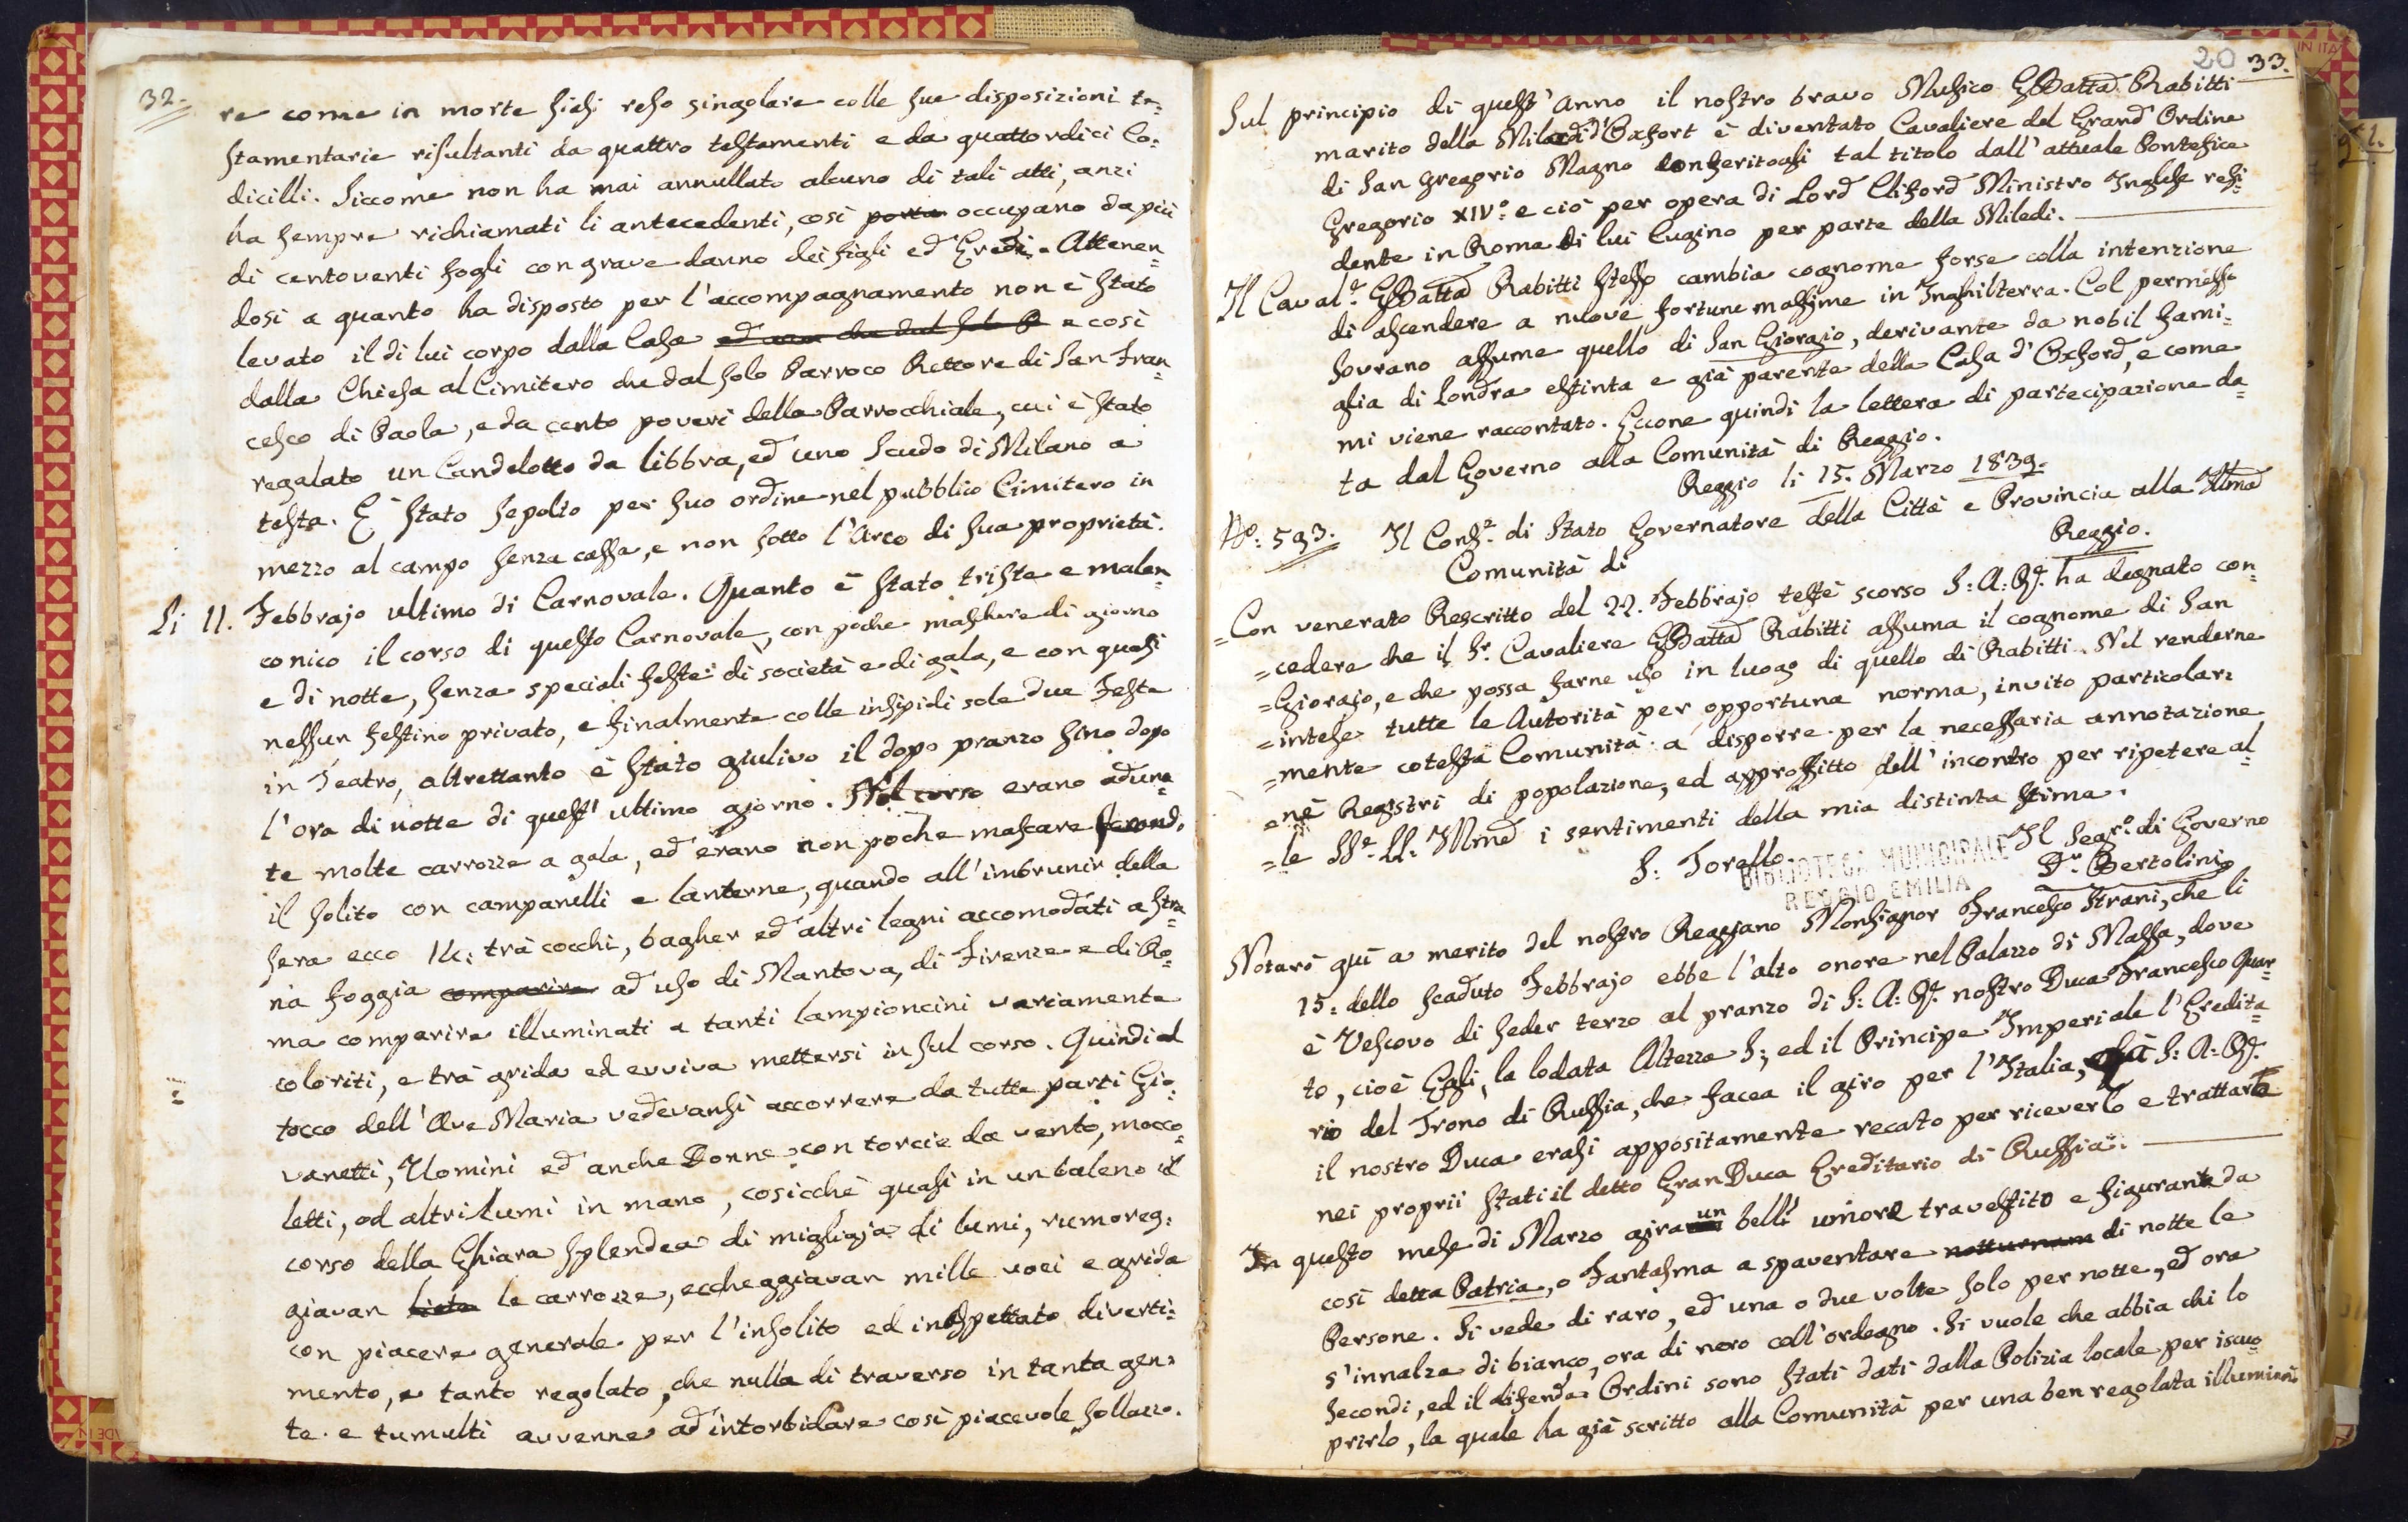 32.
re come in morte siasi reso singolare colle sue disposizioni te=
stamentarie risultanti da quattro testamenti e da quattordici Co=
dicilli. Siccome non ha mai annullato alcuno di tali atti, anzi
ha sempre richiamati li antecedenti, così porta occupano da più
di centoventi fogli con grave danno dei figli ed Eredi. Attenen=
dosi a quanto ha disposto per l'accompagnamento non è stato
levato il di lui corpo dalla Casa e così
dalla Chiesa al Cimitero che dal solo Parroco Rettore di San Fran=
cesco di Paola, e da cento poveri della Parrocchiale, cui è stato
regalato un Candelotto da libbra, ed uno Scudo di Milano a
testa. È stato sepolto per suo ordine nel pubblico Cimitero in
mezzo al campo senza cassa, e non sotto l'Arco di sua proprietà.
Li 11. Febbrajo ultimo di Carnovale. Quanto è stato triste e malen=
conico il corso di questo Carnovale, con poche maschere di giorno
e di notte, senza speciali feste di società e di gala, e con quasi
nessun festino privato, e finalmente colle insipidi sole due Feste
in Teatro, altrettanto è stato giulivo il dopo pranzo sino dopo
l'ora di notte di quest'ultimo giorno. Nel corso erano aduna=
te molte carrozze a gala, ed erano non poche mascare second.
il solito con campanelli e lanterne, quando all'imbrunir della
sera ecco 14: trà cocchi, bagher ed altri legni accomodati a stra=
na foggia comparire ad uso di Mantova, di Firenze e di Ro=
ma comparire illuminati a tanti lampioncini variamente
coloriti, e trà grida ed evviva mettersi in sul corso. Quindi al
tocco dell'Ave Maria vedevansi accorrere da tutte parti Gio=
vanetti, Uomini ed anche Donne con torcie da vento, mocco=
letti, od altri lumi in mano, cosicchè quasi in un baleno il
corso della Ghiara splendea di migliaja di lumi, rumoreg=
giavan liete le carrozze, eccheggiavan mille voci e grida
con piacere generale per l'insolito ed inaspettato diverti=
mento, e tanto regolato, che nulla di traverso in tanta gen=
te e tumulti avvenne ad intorbidare così piacevole sollazzo.
20 33.
Sul principio di quest'anno il nostro bravo Musico GBatta Rabitti
marito della Miladi d'Oxfort è diventato Cavaliere del Grand'Ordine
di San Gregorio Magno conferitoglisi tal titolo dall'attuale Pontefice
Gregorio XIVº e ciò per opera di Lord Cliford Ministro Inglese resi=
dente in Roma di lui Cugino per parte della Miledi.
Il Caval.e GBatta Rabitti stesso cambia cognome forse colla intenzione
di ascendere a nuove fortune massime in Inghilterra. Col permesso
Sovrano assume quello di San Giorgio, derivante da nobil fami=
glia di Londra estinta e già parente della Casa d'Oxford, e come
mi viene raccontato. Eccone quindi la lettera di partecipazione da=
ta dal Governo alla Comunità di Reggio.
Reggio li 15. Marzo 1839.
Nº: 593. Il Cons.e di Stato Governatore della Città e Provincia alla Illma
Comunità di Reggio.
=Con venerato Rescritto del 22. Febbrajo testè scorso S: A: R. ha degnato con=
=cedere che il Sr. Cavaliere GBatta Rabitti assuma il cognome di San
=Giorgio, e che possa farne uso in luogo di quello di Rabitti. Nel renderne
=intese tutte le Autorità per opportuna norma, invito particolar=
=mente cotesta Comunità a disporre per la necessaria annotazione
=nè Registri di popolazione, ed approfitto dell'incontro per ripetere al=
=le SSe. LL: Illme i sentimenti della mia distinta stima.
F: Torello. Il Segr.º di Governo
Dr. Bertolini
BIBLIOTECA MUNICIPALE
REGGIO EMILIA
Notarò quì a merito del nostro Reggiano Monsignor Francesco Strani, che li
15: dello scaduto Febbrajo ebbe l'alto onore nel Palazzo di Massa, dove
è Vescovo di seder terzo al pranzo di S: A: R. nostro Duca Francesco Quar=
to, cioè Egli, la lodata Altezza S:, ed il Principe Imperiale l'Eredita=
rio del Trono di Russia, che facea il giro per l'Italia, S: A: R.
il nostro Duca erasi appositamente recato per riceverlo e trattarlo
nei proprii stati il detto Gran Duca Ereditario di Russia.
In questo mese di Marzo gira un bell'umore travestito e figurante da
così detta Patria, o Fantasma a spaventare notturnam di notte le
Persone. Si vede di raro, ed una o due volte solo per notte, ed ora
s'innalza di bianco, ora di nero coll'ordegno. Si vuole che abbia chi lo
secondi, ed il difenda. Ordini sono stati dati dalla Polizia locale per isco=
prirlo, la quale ha già scritto alla Comunità per una ben regolata illuminaz.